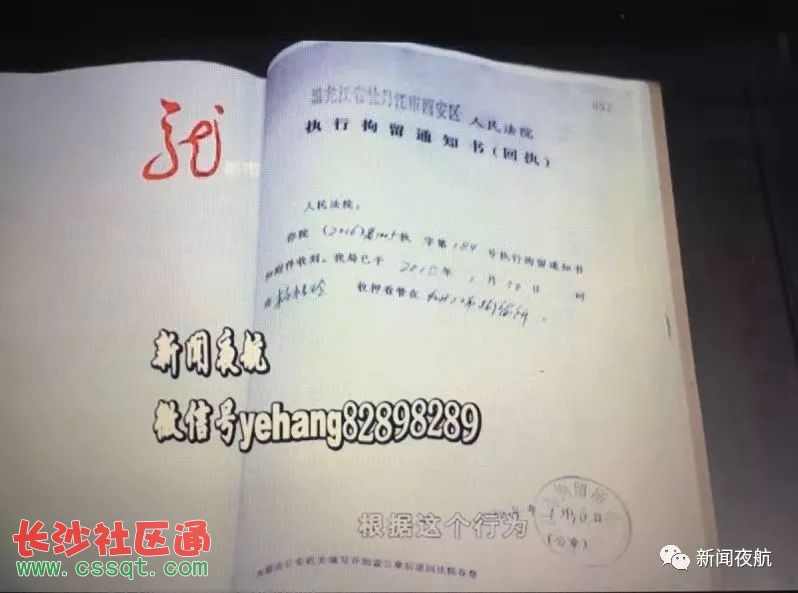 黑龙江省牡丹江市西安区人民法院
082
执行拘留通知书(回执)
人民法院:
你院(2016)黑1005执 字第184号执行拘留通知书
和附件收到。我局已于 年1月10日 时
将 收押看管在
新闻夜航
微信号yehang82898289
年1月10日
(公章)
根据这个行为
长沙社区通
www.cssqt.com
新闻夜航